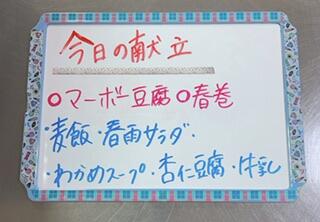 今日の献立
○マーボー豆腐○春巻
・麦飯・春雨サラダ・
・わかめスープ・杏仁豆腐・牛乳